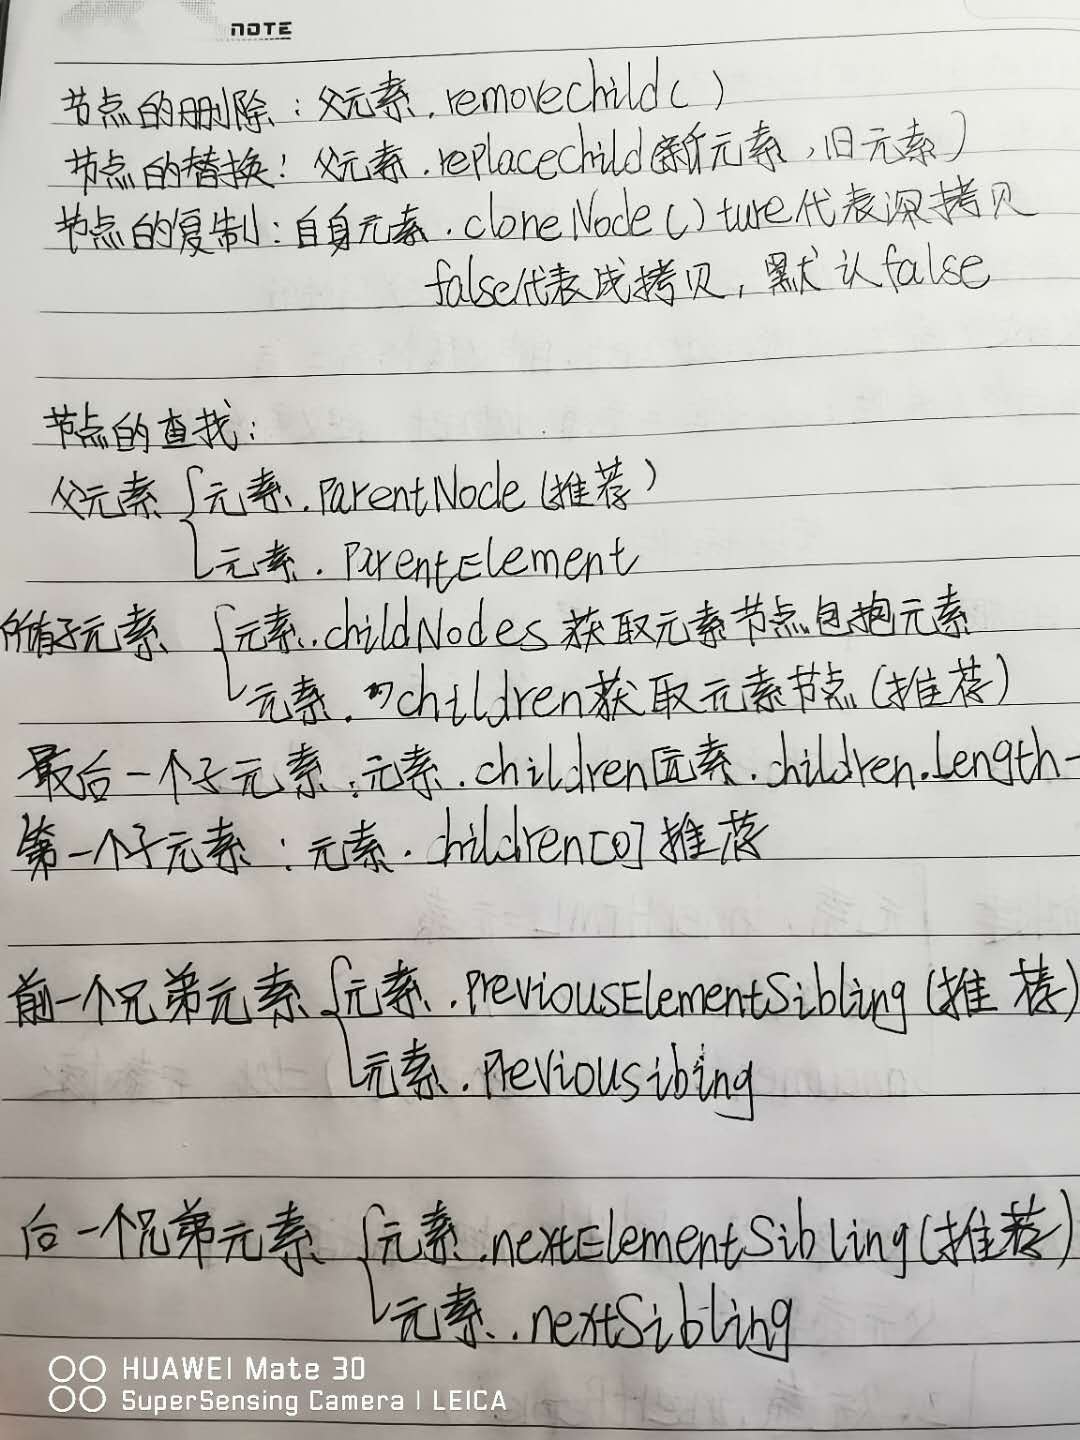 NOTE
节点的删除：父元素.removechild()
节点的替换：父元素.replacechild(新元素,旧元素)
节点的复制：自身元素.cloneNode() ture代表深拷贝
false代表浅拷贝，默认false
节点的查找：
父元素 元素.ParentNode(推荐)
元素.ParentElement
所有子元素 元素.childNodes获取元素节点包抱元素
元素.children获取元素节点(推荐)
最后一个子元素：元素.children[元素.children.Length-
第一个子元素：元素.children[0]推荐
前一个兄弟元素 元素.PreviousElementSibling(推荐)
元素.Previousibing
后一个兄弟元素 元素.nextElementSibling(推荐)
元素.nextSibling
HUAWEI Mate 30
SuperSensing Camera | LEICA